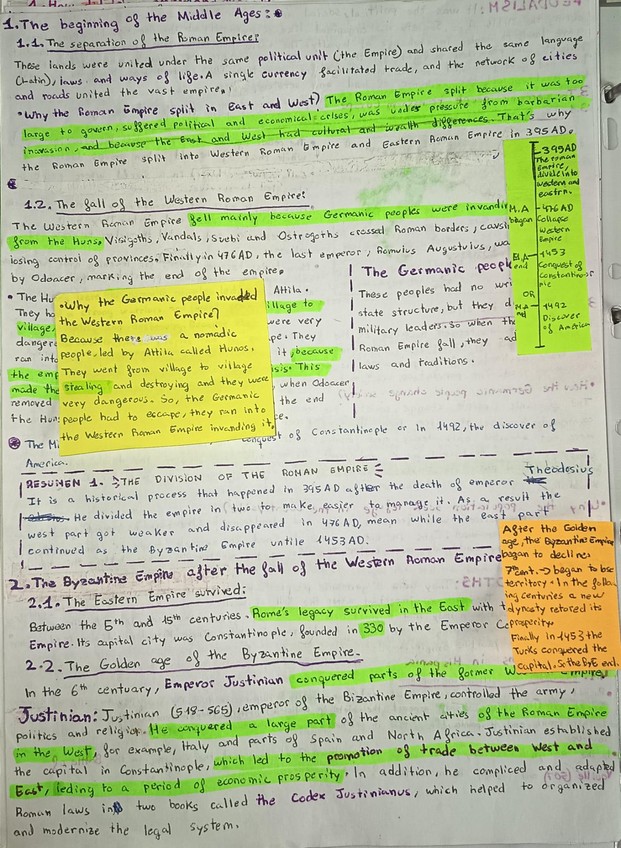 1. The beginning of the Middle Ages:
1.1. The separation of the Roman Empire:
These lands were united under the same political unit (the Empire) and shared the same language
(Latin), laws and ways of life. A single currency facilitated trade, and the network of cities
and roads united the vast empire.
• Why the Roman Empire split in East and West? The Roman Empire split because it was too
large to govern, suffered political and economical crises, was under pressure from barbarian
invasion, and because the East and West had cultural and wealth differences. That's why
the Roman Empire split into Western Roman Empire and Eastern Roman Empire in 395 AD.
399AD
The roman
Empire,
divide into
western and
eastrn.
M.A
began
476AD
Collapse
Western
Empire
M.A
end
1453
Conquest of
Constantino
ple
OR
M.A
end
1492
Discover
of America
1.2. The fall of the Western Roman Empire:
The Western Roman Empire fell mainly because Germanic peoples were invandi
from the Huns, Visigoths, Vandals, Suebi and Ostrogoths crossed Roman borders, cavsi
losing control of provinces. Finally in 476 AD, the last emperor, Romulus Augustulus, wa
by Odoacer, marking the end of the empire.
• The Hu
Attila.
They ho
illage to
village,
were very
danger
pe. They
ran into
it, because
the emp
isis. This
made the
when Odoacer
removed
the end
the Hun
ce.
• Why the Germanic people invaded
the Western Roman Empire?
Because there was a nomadic
people, led by Attila called Hunos.
They went from village to village
stealing and destroying and they were
very dangerous. So, the Germanic
people had to escape, they ran into
the Western Roman Empire invanding it.
The Germanic peopl
These peoples had no wri
state structure, but they d
military leaders. So when the
Roman Empire fall, they ad
laws and traditions.
The Mi
conquest of Constantinople or In 1492, the discover of
America.
RESUMEN 1. THE DIVISION OF THE ROMAN EMPIRE
It is a historical process that happened in 395 AD after the death of emperor Theodosius
He divided the empire in two for make easier to manage it. As a result the
west part got weaker and disappeared in 476AD, mean while the east part
continued as the Byzantine Empire untile 1453AD.
2. The Byzantine Empire after the fall of the Western Roman Empire
2.1. The Eastern Empire survived:
Between the 5th and 15th centuries. Rome's legacy survived in the East with t
Empire. Its capital city was Constantinople, founded in 330 by the Emperor Co
After the Golden
age, the Byzantine Empire
began to decline:
7th cent. → began to lose
territory. In the follow
ing centuries a new
dynasty retored its
prosperity.
Finally in 1453 the
Turks conquered the
Capital. So the ByE end.
2.2. The Golden age of the Byzantine Empire.
In the 6th centuary, Emperor Justinian conquered parts of the former W
Empire.
Justinian: Justinian (518-565), emperor of the Bizantine Empire, controlled the army,
politics and religion. He conquered a large part of the ancient cities of the Roman Empire
in the West, for example, Italy and parts of Spain and North Africa. Justinian established
the capital in Constantinople, which led to the promotion of trade between West and
East, leding to a period of economic prosperity. In addition, he compliced and adapted
Roman laws in two books called the Codex Justinianus, which helped to organized
and modernize the legal system.